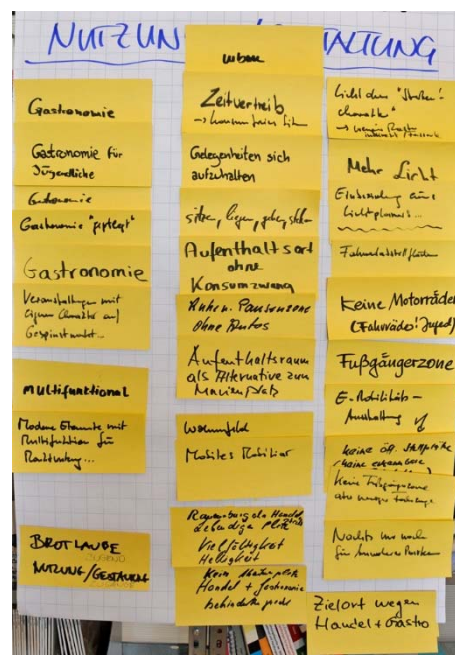 NUTZUN / TALTUNG
Gastronomie
Gastronomie für
Jugendliche
Gastronomie
Gastronomie "gepflegt"
Gastronomie
Veranstaltungen mit
eigenem Charakter auf
Gespinstmarkt...
Multifunktional
Moderne Elemente mit
Multifunktion für
BROTLAUBE
NUTZUNG/GESTALTUNG
urban
Zeitvertreib
Gelegenheiten sich
aufzuhalten
sitzen, liegen, gehen, stehen
Aufenthaltsort
ohne
Konsumzwang
Ruhe u. Pausenzone
ohne Autos
Aufenthaltsraum
als Alternative zum
Marienplatz
Wohnumfeld
Mobiles Mobiliar
Handel
lebendige Plätze
Vielfältigkeit
Helligkeit
Kein
Handel + Gastronomie
behindertengerecht
Licht
charakter"
Mehr Licht
Einbindung eines
Lichtplaners...
Fahrradabstellflächen
Keine Motorräder
(Fahrräder! Jugend)
Fußgängerzone
E-Mobilitäts-
keine öff. Stellplätze
Keine Fußgängerzone
aber weniger
Nachts nur noch
für Anwohner Parken
Zielort wegen
Handel + Gastro